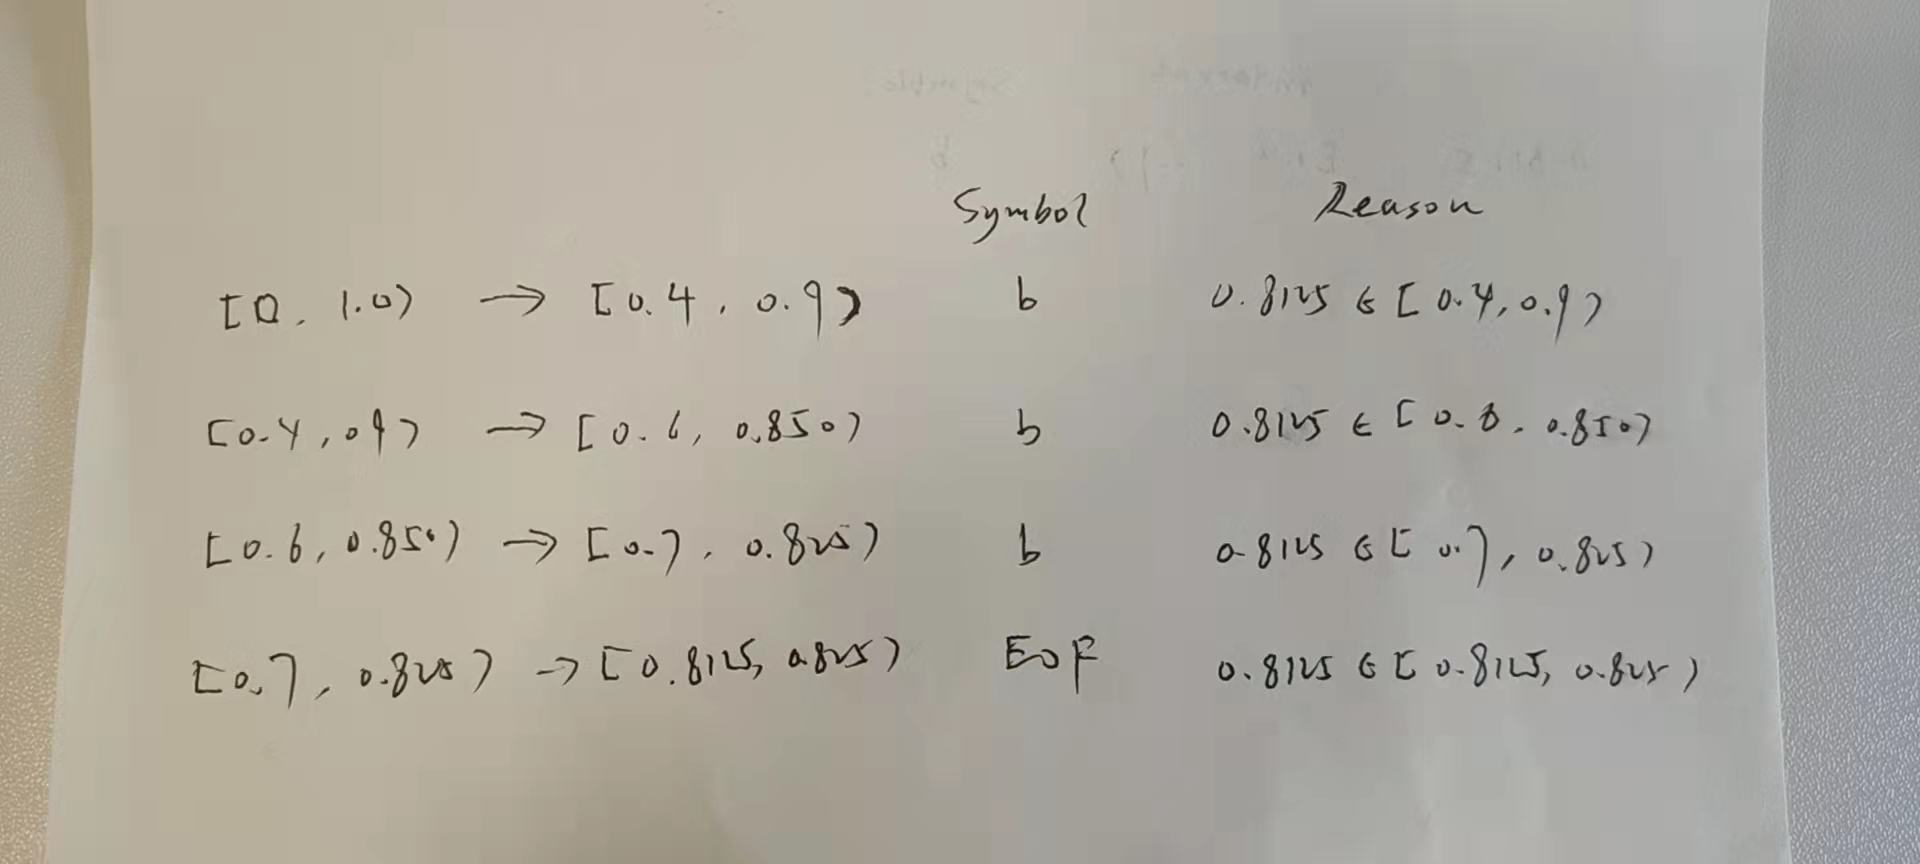 Symbol Reason
[0, 1.0) → [0.4, 0.9) b 0.8125 ∈ [0.4, 0.9)
[0.4, 0.9) → [0.6, 0.850) b 0.8125 ∈ [0.6, 0.850)
[0.6, 0.850) → [0.7, 0.825) b 0.8125 ∈ [0.7, 0.825)
[0.7, 0.825) → [0.8125, 0.825) EOF 0.8125 ∈ [0.8125, 0.825)